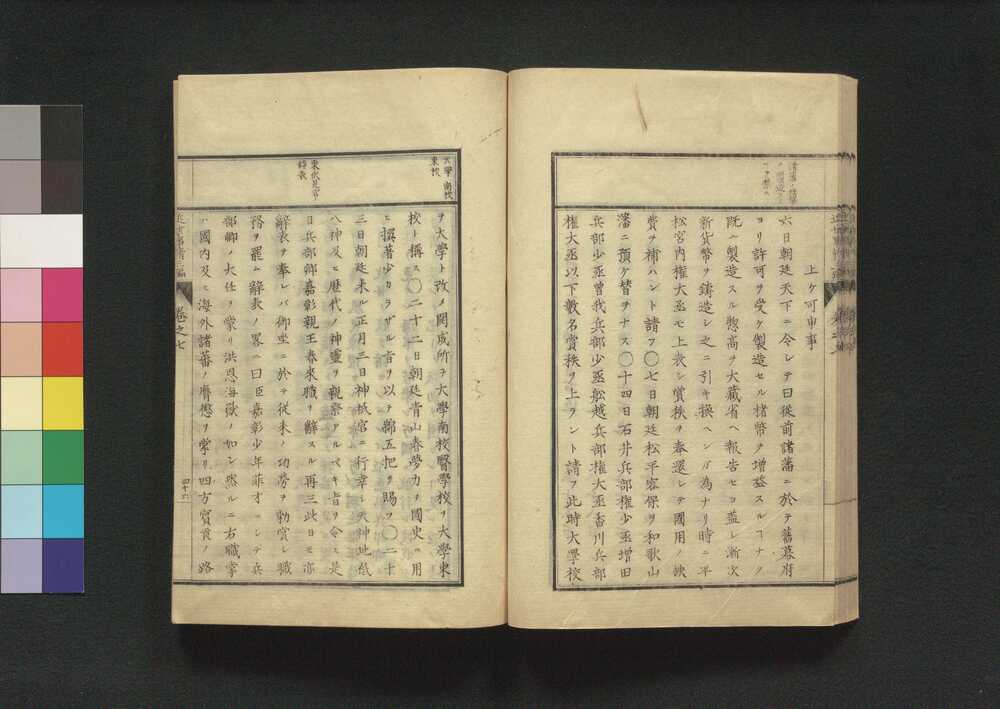 上ケ可申事
六日朝廷天下ニ令シテ曰從前諸藩ニ於テ舊幕府
ヨリ許可ヲ受ケ製造セル楮幣ヲ増發スルコナク
既ニ製造スル惣高ヲ大藏省ヘ報告セヨ蓋シ漸次
新貨幣ヲ鑄造シ之ニ引キ換ヘンガ為ナリ時ニ平
松宮内權大丞モ上表シ賞秩ヲ奉還シテ國用ノ缺
費ヲ補ハント請フ〇七日朝廷松平容保ヲ和歌山
藩ニ預ケ替ヲナス〇十四日石井兵部權少丞増田
兵部少丞曽我兵部少丞舩越兵部權大丞香川兵部
權大丞以下數名賞秩ヲ上ラント請フ此時大學校
大學 南校
東校
ヲ大學ト改メ開成所ヲ大學南校醫學校ヲ大學東
校ト稱ス〇二十二日朝廷青山春夢力ヲ國史ニ用
ヒ撰著少カラザル旨ヲ以テ縣五把ヲ賜フ〇二十
三日朝廷来ル正月三日神祇官ニ行幸シ天神地祇
八神及ヒ歴代ノ神靈ヲ親祭アルベキ旨ヲ令ス是
東伏見宮ノ
辭表
日兵部卿嘉彰親王春来職ヲ辭スル再三此日モ亦
辭表ヲ奉レバ御坐ニ於テ従来ノ功勞ヲ勅賞シ職
務ヲ罷ム辭表ノ畧ニ曰臣嘉彰少年菲才ニシテ兵
部卿ノ大任ヲ蒙リ洪恩海嶽ノ如シ然ルニ右職掌
ハ國内及ヒ海外諸蕃ノ膺懲ヲ掌リ四方實貫ノ路
卷之七
四十六